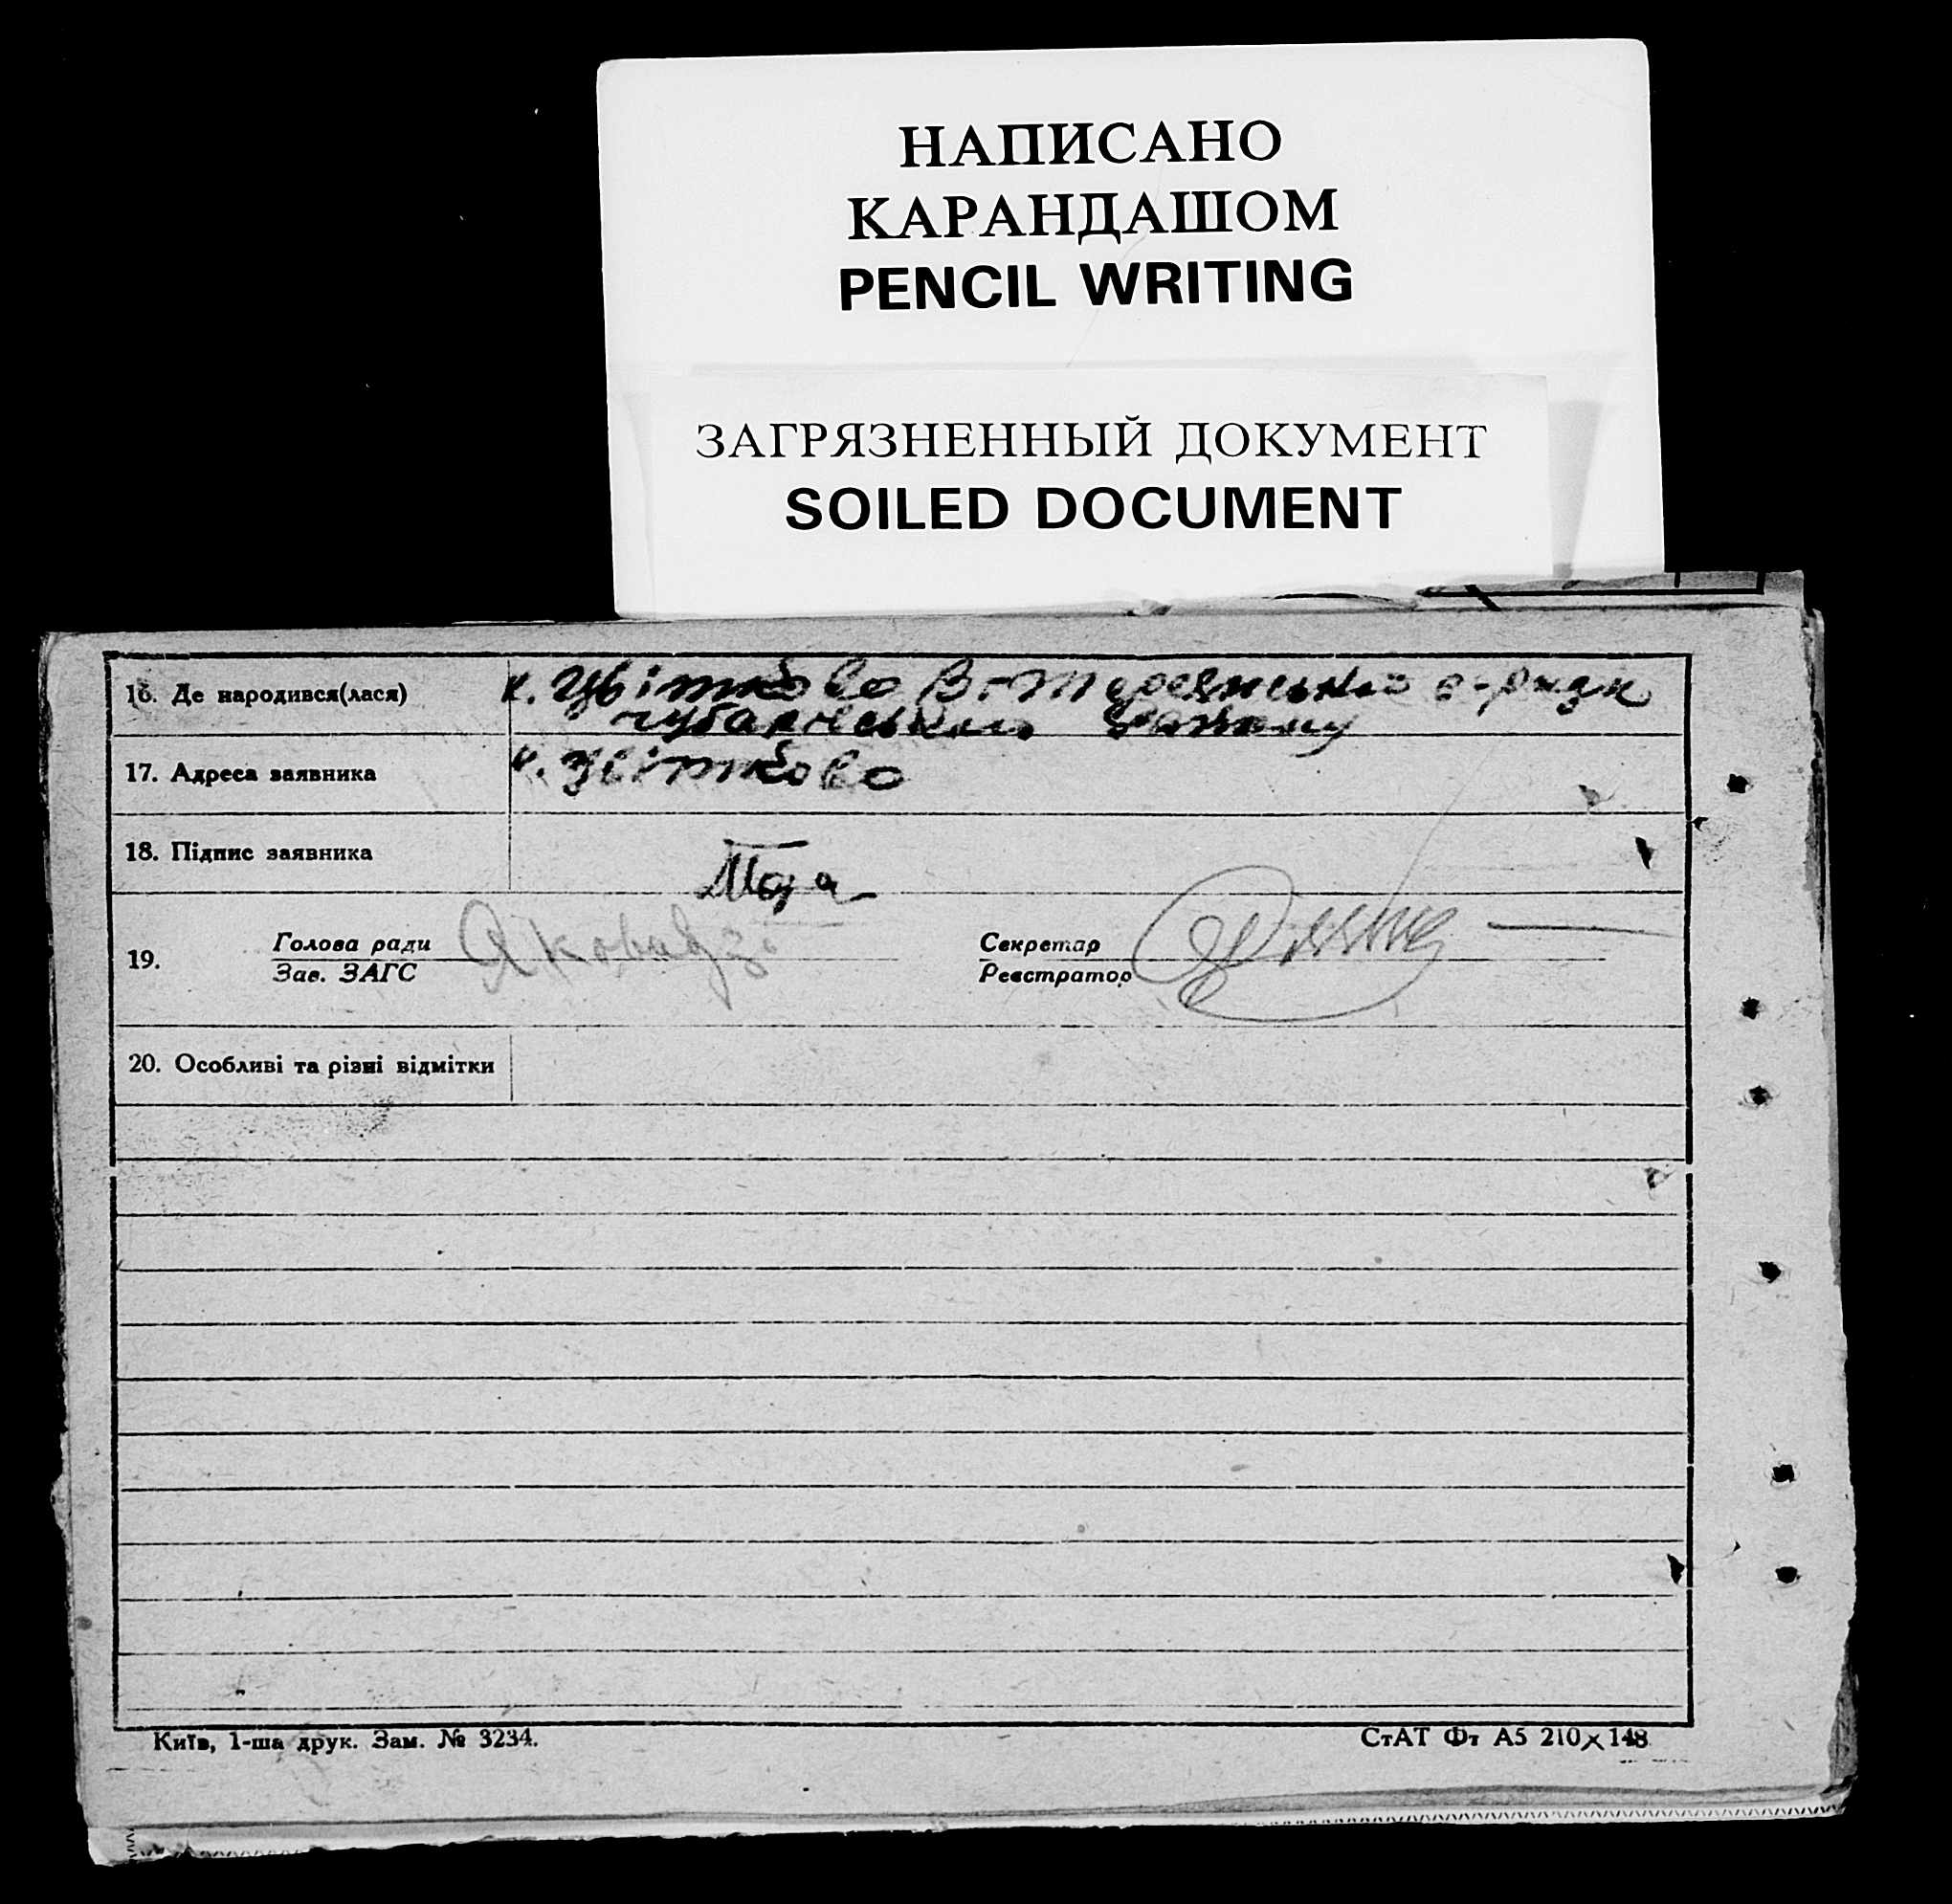 НАПИСАНО
КАРАНДАШОМ
PENCIL WRITING
ЗАГРЯЗНЕННЫЙ ДОКУМЕНТ
SOILED DOCUMENT
16. Де народився(лася) к. Цвітково В-Т
17. Адреса заявника к. Цвітково
18. Підпис заявника
19. Голова ради Секретар
Зав. ЗАГС Реєстратор
20. Особливі та різні відмітки
Київ, 1-ша друк. Зам. № 3234. СтАТ Фт А5 210×148